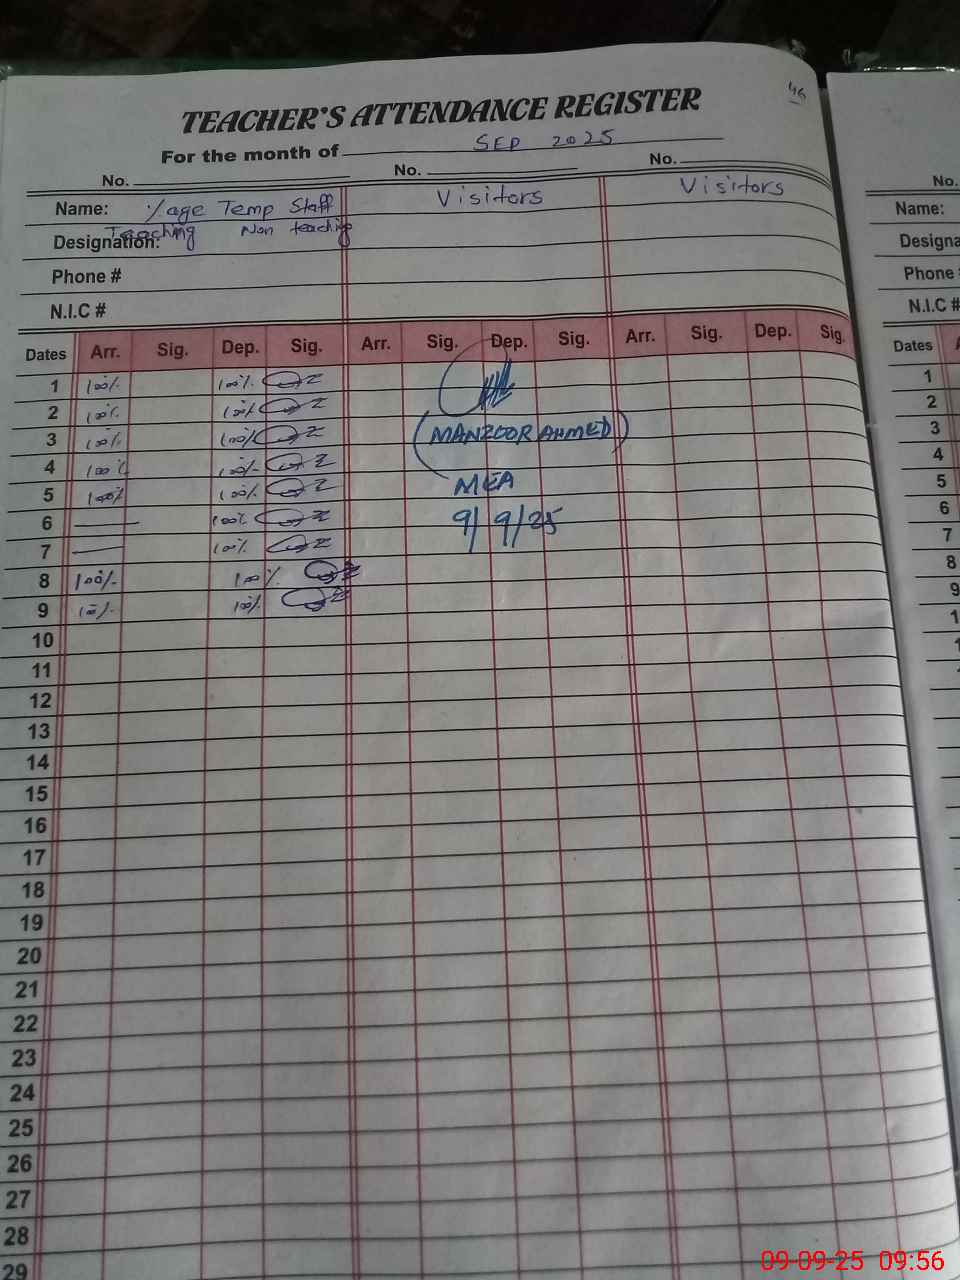 46
TEACHER'S ATTENDANCE REGISTER
For the month of SEP 2025
No. No. No.
Name: %age Temp Staff Visitors Visitors
Teaching Non teaching
Designation:
Phone #
N.I.C #
Dates Arr. Sig. Dep. Sig. Arr. Sig. Dep. Sig. Arr. Sig. Dep. Sig.
1 100% 100%
2 100% 100%
3 100% 100% (MANZOOR AHMED)
4 100% 100%
5 100% 100% MEA
6 — 100% 9/9/25
7 — 100%
8 100% 100%
9 100% 100%
10
11
12
13
14
15
16
17
18
19
20
21
22
23
24
25
26
27
28
29
No.
Name:
Designa
Phone
N.I.C #
Dates
1
2
3
4
5
6
7
8
9
09-09-25 09:56